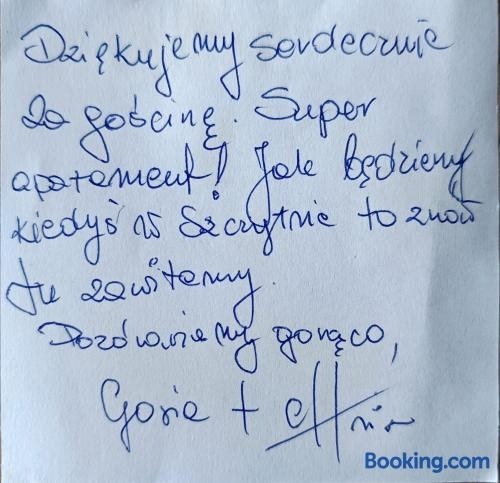 Dziękujemy serdecznie
za gościnę. Super
apatament! Jak będziemy
kiedyś w Szczytnie to znów
tu zawitamy.
Pozdrawiamy gorąco,
Gosia +
Booking.com